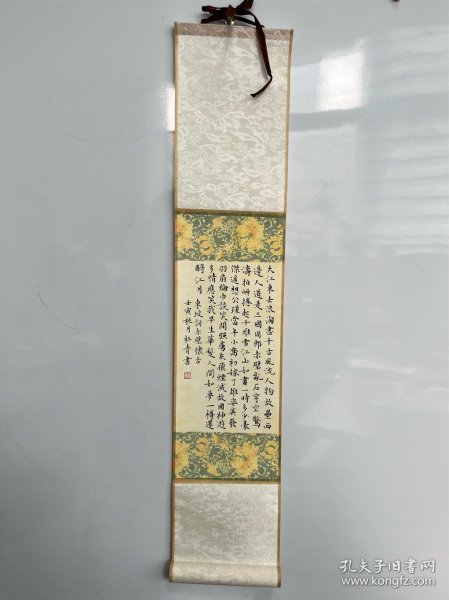 大江东去浪淘尽千古风流人物故垒西
边人道是三国周郎赤壁乱石穿空惊
涛拍岸捲起千堆雪江山如画一时多少豪
傑遥想公瑾当年小乔初嫁了雄姿英發
羽扇纶巾谈笑间强虏灰飞烟灭故国神游
多情应笑我早生华髮人间如梦一樽还
酹江月 东坡词赤壁怀古
壬寅秋月 青书
孔夫子旧书网
www.kongfz.com